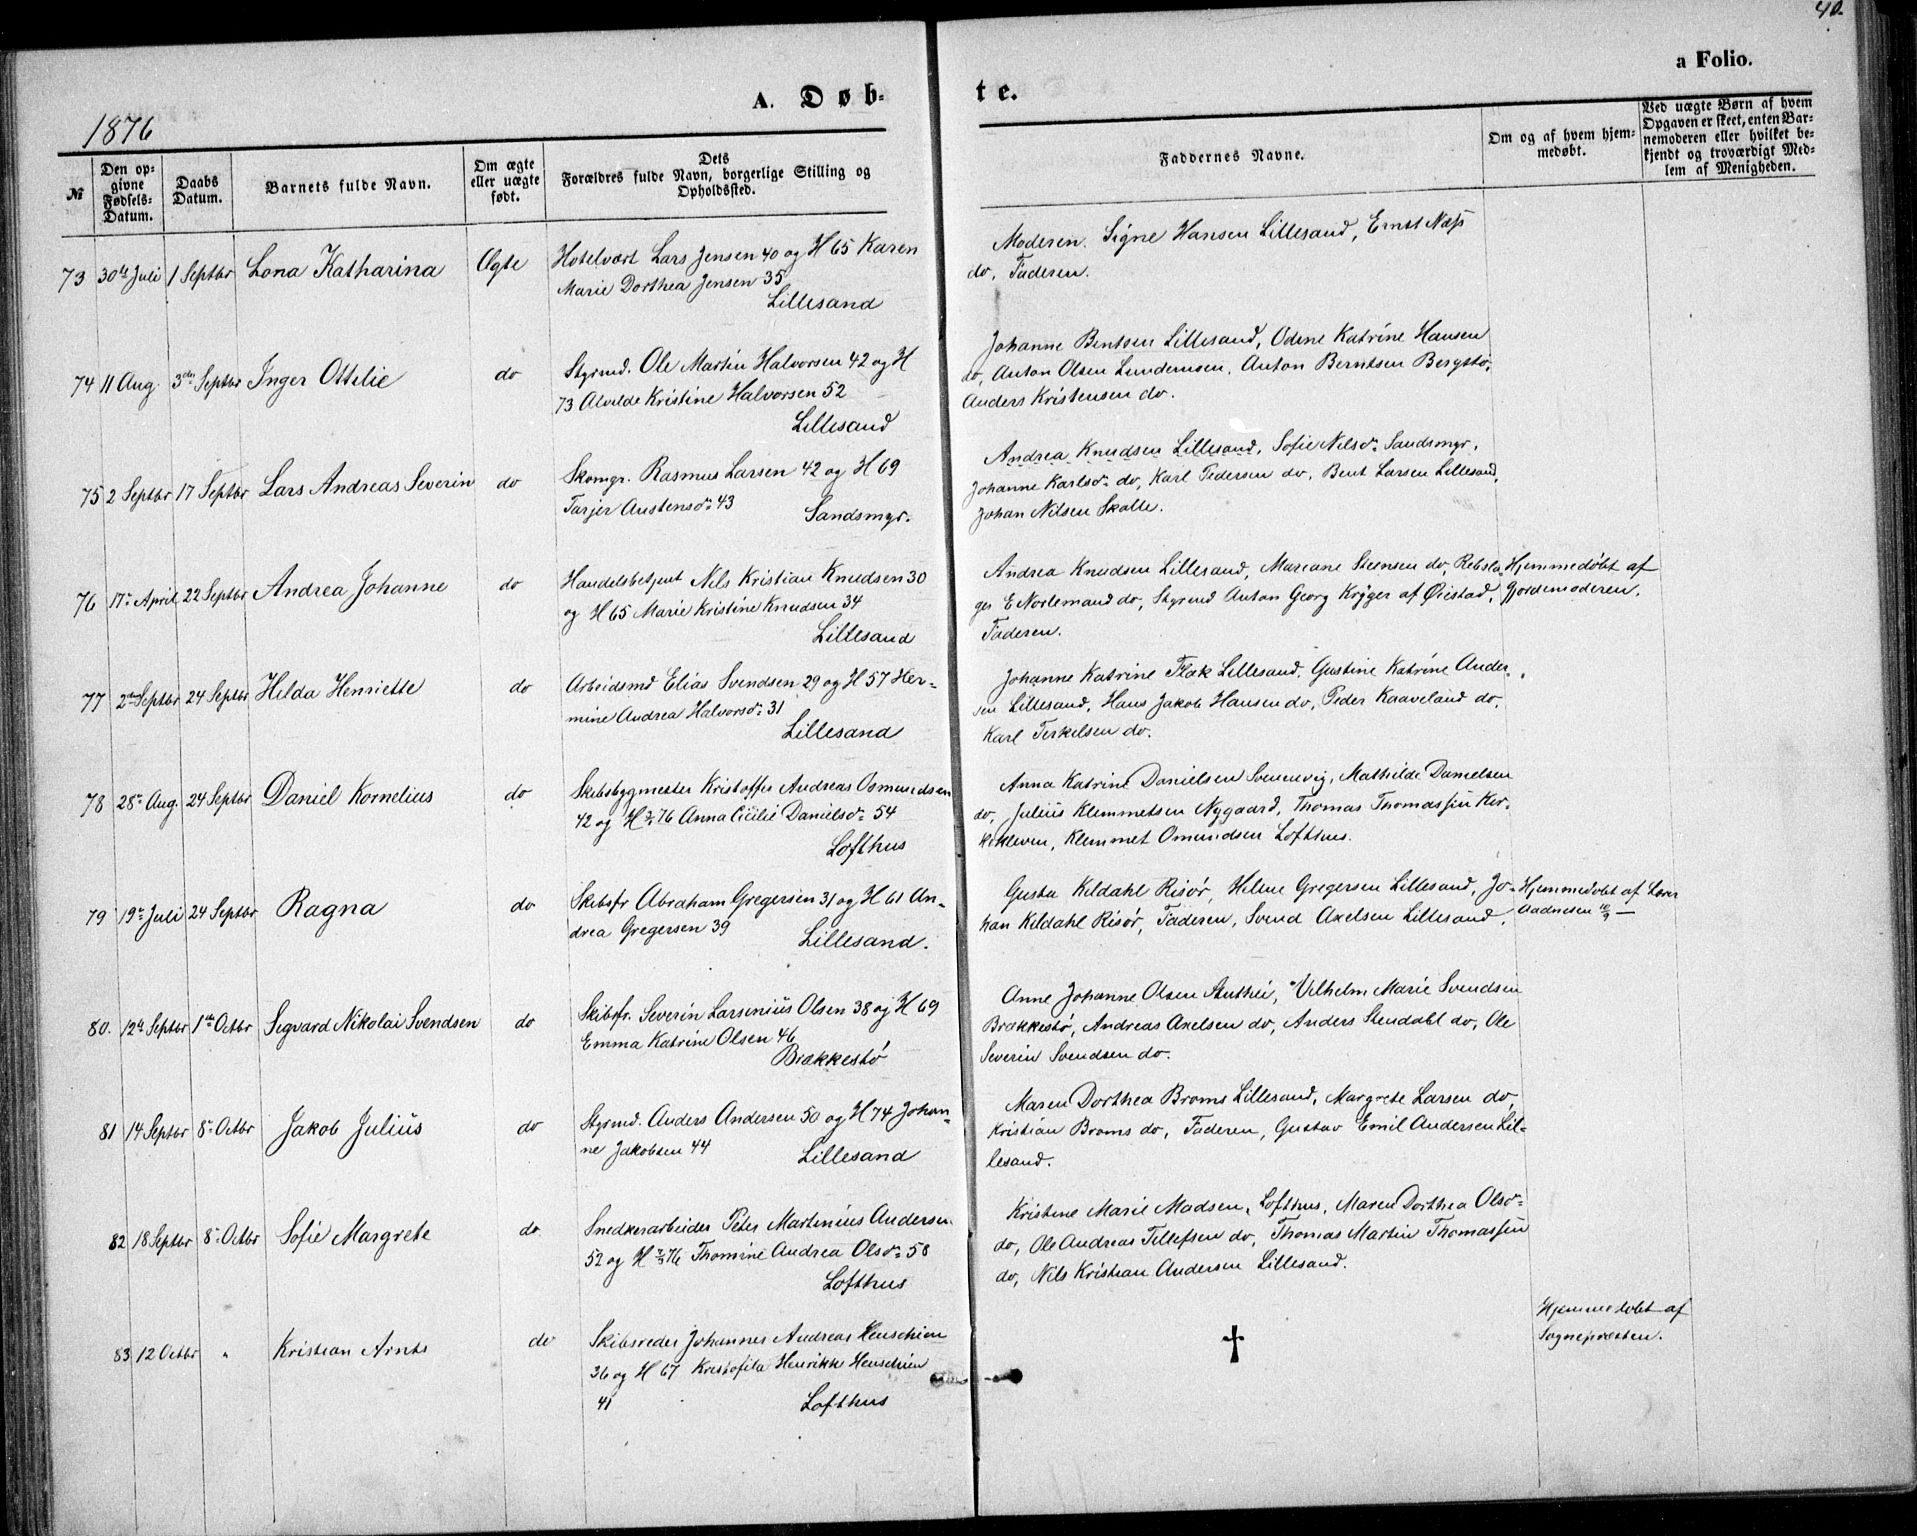 40.
a Folio.
A. Døb-
te.
1876
№
Den op-
givne
Fødsels-
Datum.
Daabs
Datum.
Barnets fulde Navn.
Om ægte
eller uægte
født.
Dets
Forældres fulde Navn, borgerlige Stilling og
Opholdssted.
Faddernes Navne.
Om og af hvem hjem-
medøbt.
Ved uægte Børn af hvem
Opgaven er skeet, enten Bar-
nemoderen eller hvilket be-
kjendt og troværdigt Med-
lem af Menigheden.
73 30te Juli 1 Septbr Lona Katharina Ægte
Hotelvært Lars Jensen 40 og H 65 Karen
Marie Dorthea Jensen 35
Lillesand
Moderen. Signe Hansen Lillesand, Ernst Næss
do, Faderen.
74 11 Aug. 3die Septbr Inger Ottilie do
Styrmd. Ole Martin Halvorsen 42 og H
73 Alvilde Kristine Halvorsen 52
Lillesand
Johanne Bentsen Lillesand, Odine Katrine Hansen
do, Anton Olsen Lundemoen. Anton Berntsen Bergstø,
Anders Kristensen do.
75 2 Septbr 17 Septbr Lars Andreas Severin do
Skomgr. Rasmus Larsen 42 og H 69
Tarjer Austensdr 43
Sandsmyr.
Andrea Knudsen Lillesand, Sofie Nilsdr Sandsmyr,
Johanne Karlsdr do, Karl Pedersen do, Bent Larsen Lillesand,
Johan Nilsen Skalle.
76 17de April 22 Septbr Andrea Johanne do
Handelsbetjent Nils Kristian Knudsen 30
og H 65 Marie Kristine Knudsen 34
Lillesand
Andrea Knudsen Lillesand, Mariane Steensen do, Rebsla-
ger E Norlemand do, Styrmd Anton Georg Krÿger af Øiestad,
Faderen.
Hjemmedøbt af
Gjordemoderen.
77 2den Septbr 24 Septbr Hilda Henriette do
Arbeidsmd Elias Svendsen 29 og H 57 Her-
mine Andrea Halvorsdr 31
Lillesand
Johanne Katrine Flak Lillesand. Gustine Katrine Ander-
sen Lillesand, Hans Jakob Hansen do, Peder Kaaveland do,
Karl Terkelsen do.
78 28de Aug. 24 Septbr Daniel Kornelius do
Skibsbygmester Kristoffer Andreas Osmundsen
42 og H 76 Anna Cicilie Danielsdr 54
Lofthus
Anna Katrine Danielsen Svenevig, Mathilde Danielsen
do, Julius Klemmetsen Nygaard, Thomas Thomassen Kor-
kekleven, Klemmet Omundsen Lofthus.
79 19de Juli 24 Septbr Ragna do
Skibsfr Abraham Gregersen 31 og H 61 An-
drea Gregersen 39
Lillesand.
Gusta Kildahl Risør, Hilme Gregersen Lillesand, Jo-
han Kildahl Risør, Faderen, Svend Axelsen Lillesand,
Hjemmedøbt af Lærer
Aadnesen 10/9 —
80. 12te Septbr 1ste Octbr Sigvard Nikolai Svendsen do
Skibsfr. Severin Larsenius Olsen 38 og H 69
Emma Katrine Olsen 46
Brækkestø
Anne Johanne Olsen Stuthei, Vilhelm Marie Svendsen
Brækkestø, Andreas Axelsen do, Anders Stendahl do, Ole
Severin Svendsen do.
81 14 Septbr 8de Octbr Jakob Julius do
Styrmd. Anders Andersen 50 og H 74 Johan-
ne Jakobsen 44
Lillesand
Maren Dorthea Broms Lillesand, Margrete Larsen do,
Kristian Broms do, Faderen, Gustav Emil Andersen Lil-
lesand.
82 18 Septbr 8de Octbr Sofie Margrete do.
Snedkerarbeider Peter Martinius Andersen
52 og H 76 Thomine Andrea Olsdr 58
Lofthus
Kristine Marie Madsen, Lofthus, Maren Dorthea Olsdr
do, Ole Andreas Tellefsen do, Thomas Martin Thomassen
do, Nils Kristian Andersen Lillesand.
83 12 Octbr " Kristian Arnts do
Skibsreder Johannes Andreas Henschien
36 og H 67 Kristofila Henrikke Henschien
41
Lofthus
†
Hjemmedøbt af
Sognepresten.